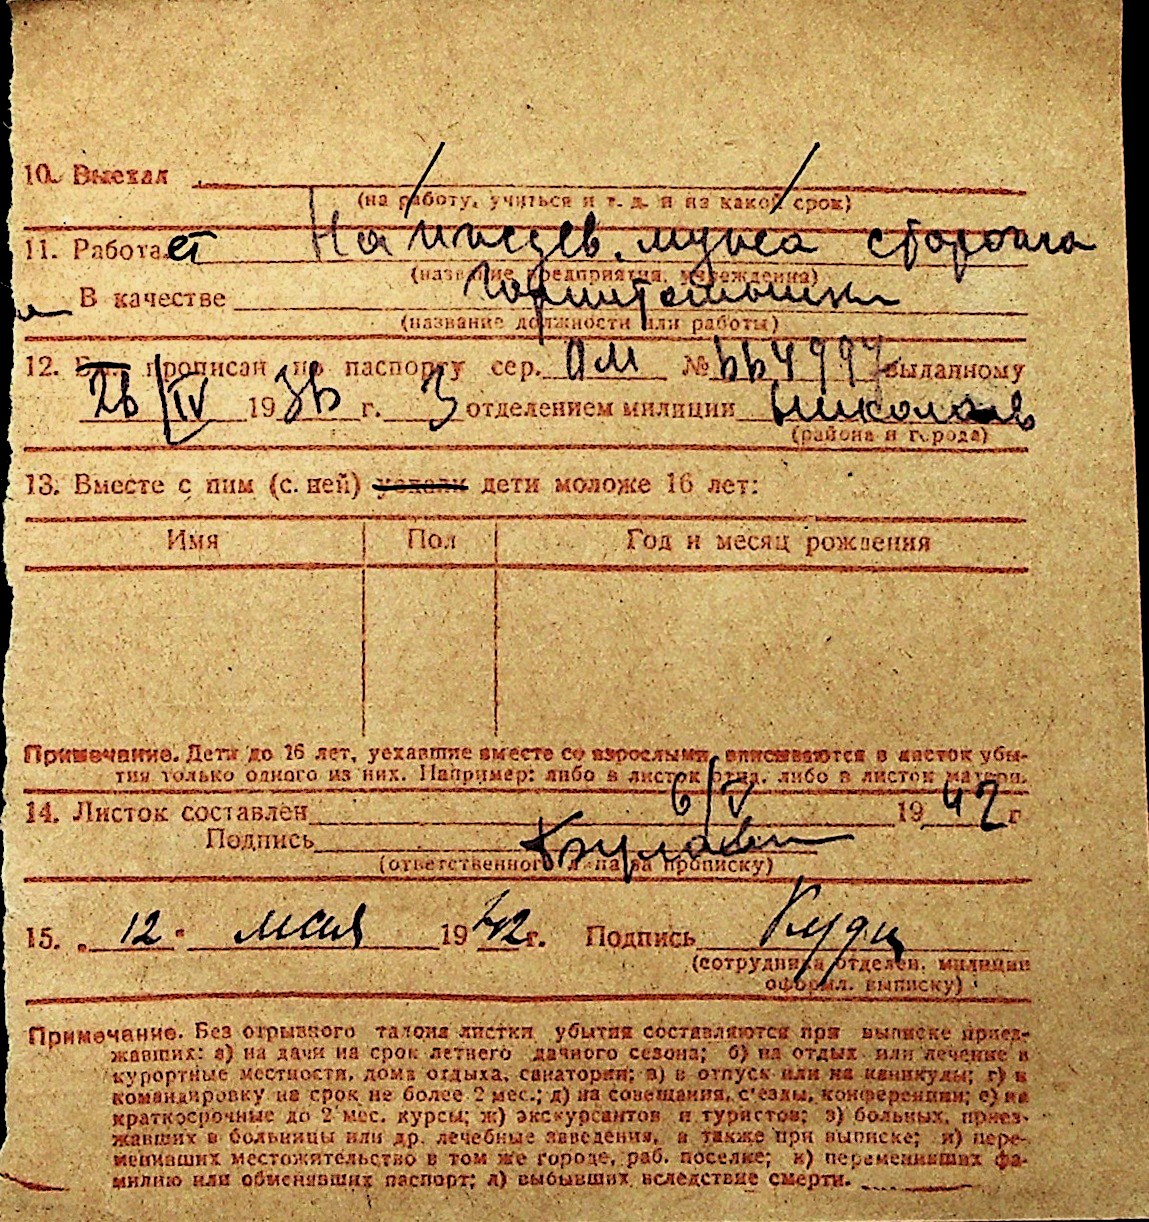 10. Выехал
(на работу, учиться и т. д. и на какой срок)
11. Работает На
(название предприятия, учреждения)
В качестве
(название должности или работы)
12. Был прописан по паспорту сер. ОМ № выданному
26/IV 1936 г. 3 отделением милиции Николаев
(района и города)
13. Вместе с ним (с. ней) уехали дети моложе 16 лет:
Имя Пол Год и месяц рождения
Примечание. Дети до 16 лет, уехавшие вместе со взрослыми, вписываются в листок убы-
тия только одного из них. Например: либо в листок отца, либо в листок матери.
14. Листок составлен 6/V 1942 г
Подпись
(ответственного лица за прописку)
15. „12" мая 1942 г. Подпись
(сотрудника отделен. милиции
оформл. выписку)
Примечание. Без отрывного талона листки убытия составляются при выписке приез-
жавших: а) на дачи на срок летнего дачного сезона; б) на отдых или лечение в
курортные местности, дома отдыха, санатории; в) в отпуск или на каникулы; г) в
командировку на срок не более 2 мес.; д) на совещания, с'езды, конференции; е) на
краткосрочные до 2 мес. курсы; ж) экскурсантов и туристов; з) больных, приез-
жавших в больницы или др. лечебные заведения, а также при выписке; и) пере-
менивших местожительство в том же городе, раб. поселке; к) переменивших фа-
милию или обменявших паспорт; л) выбывших вследствие смерти.